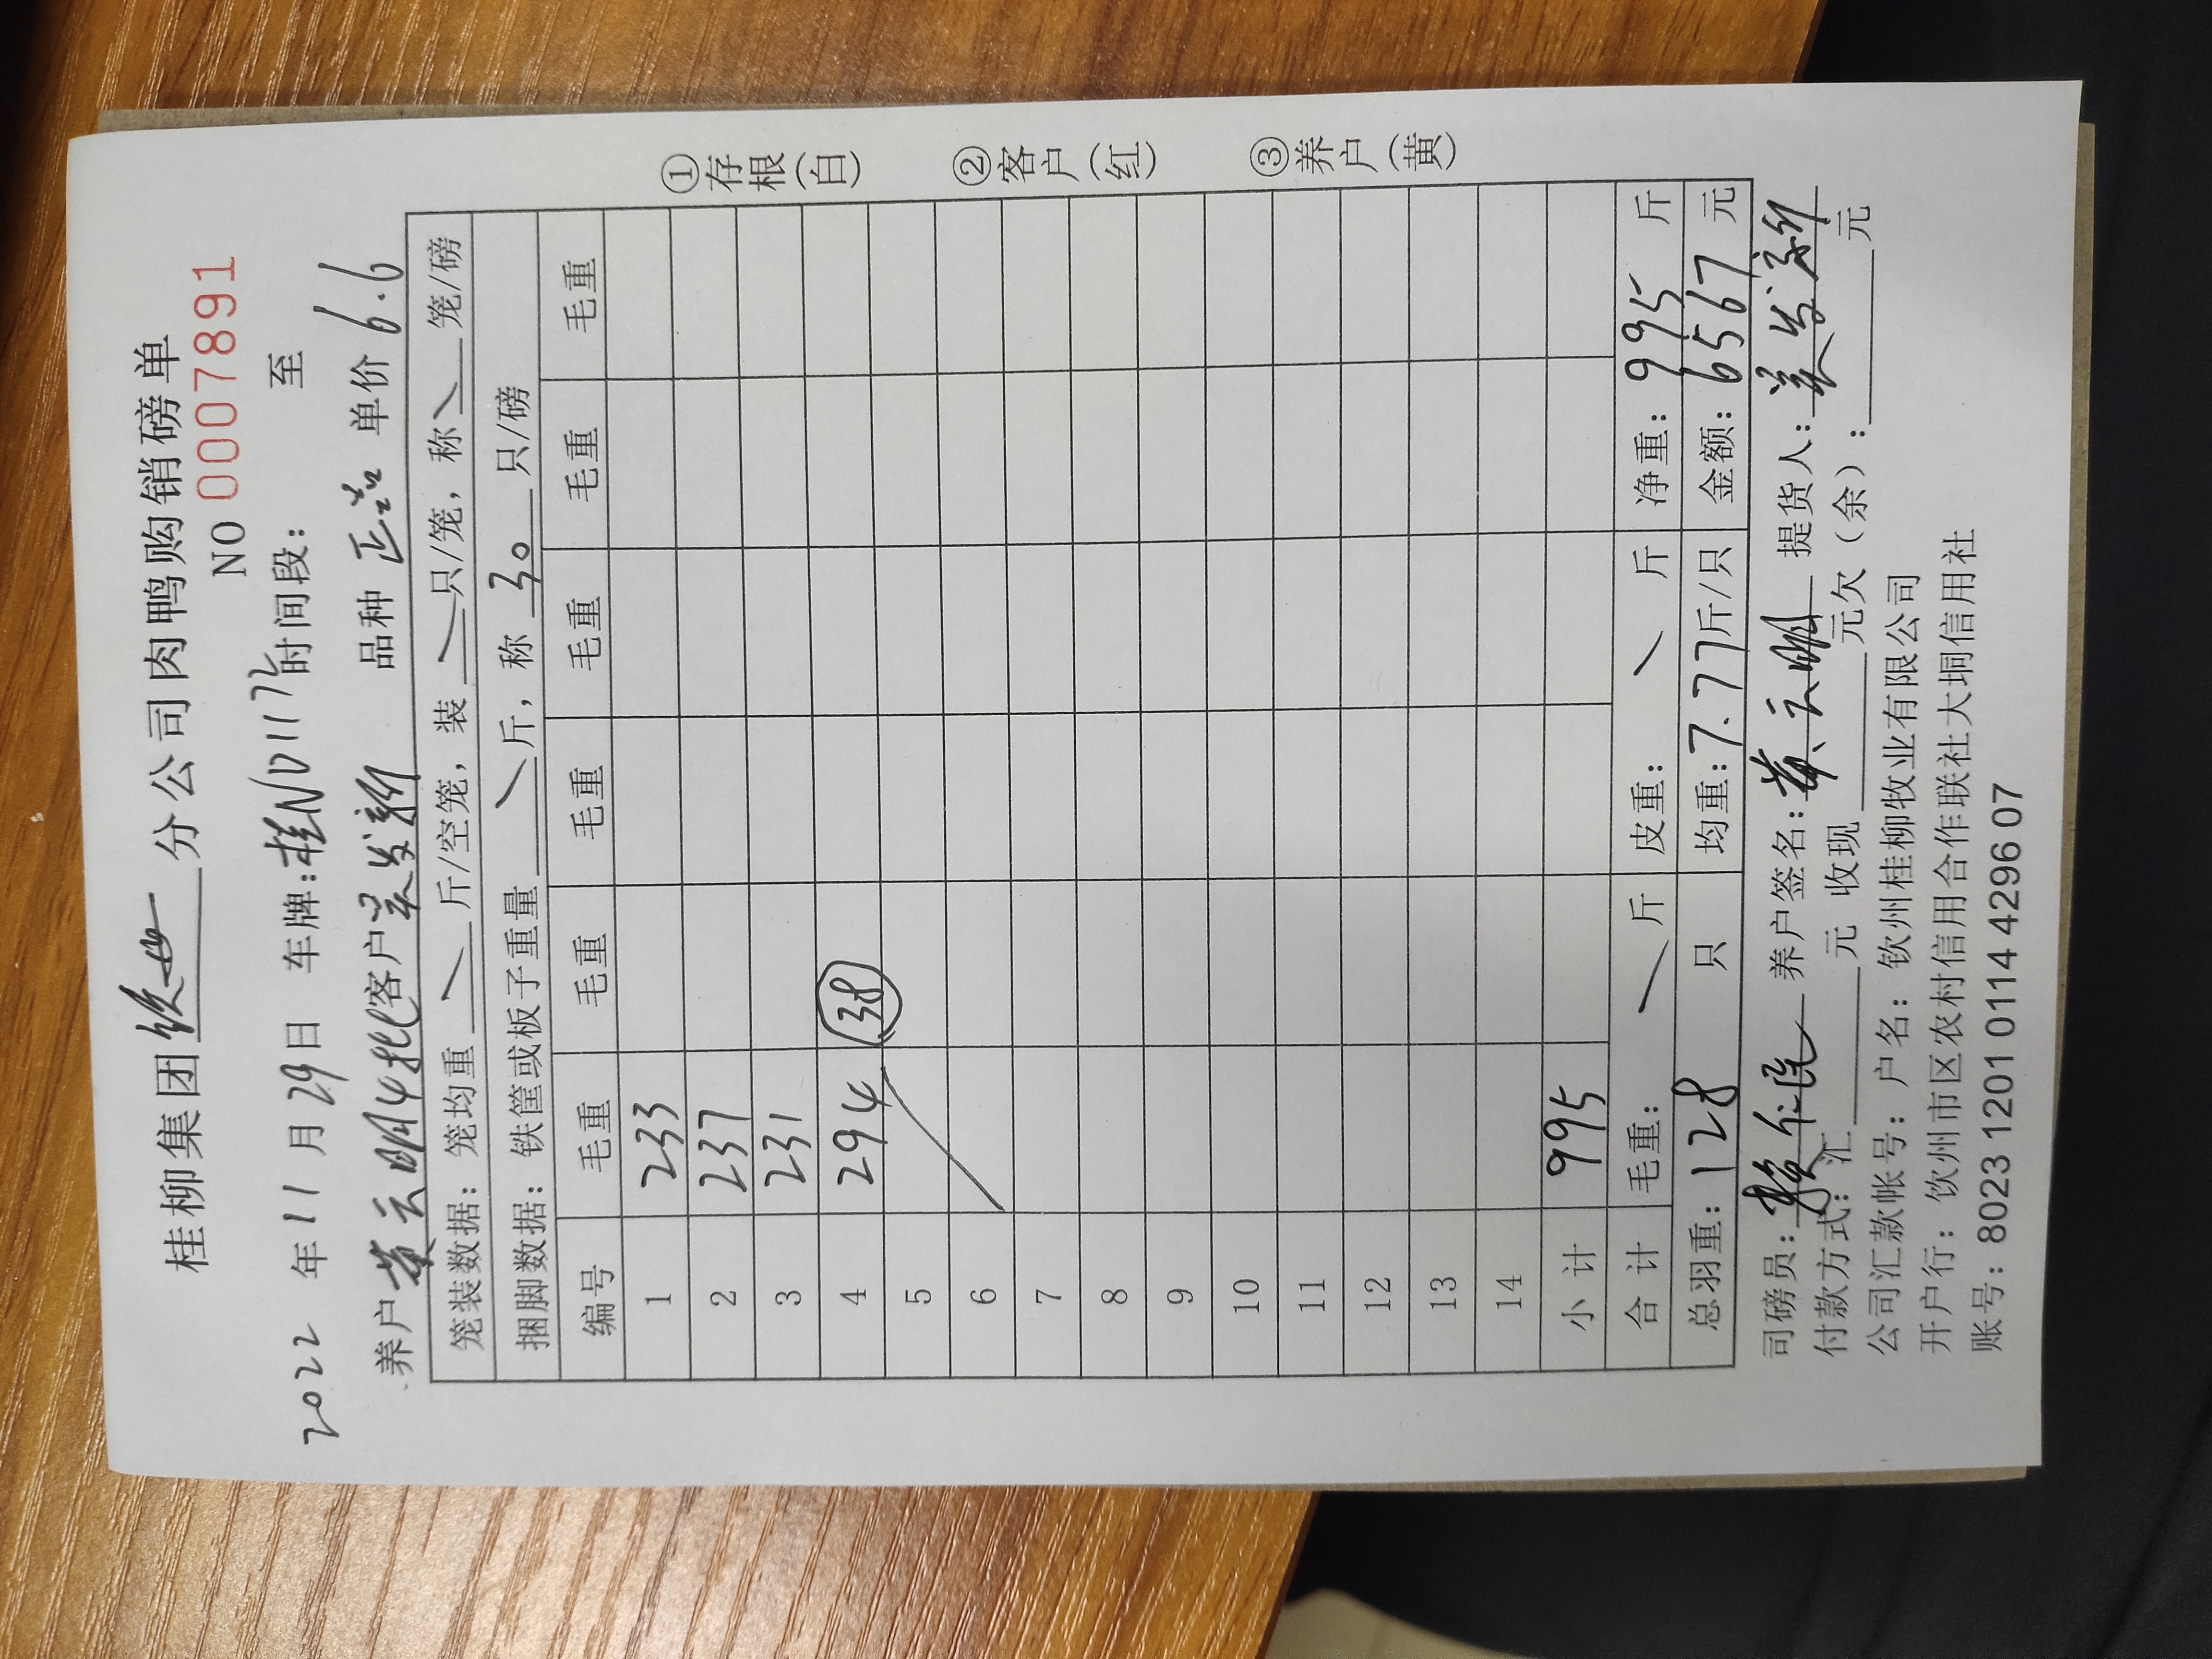 桂柳集团 分公司肉鸭购销磅单
NO 0007891
2022 年 11 月 29 日 车牌:桂ND1172 时间段: 至
养户 黄云明4批 客户 姜发新 品种 正品 单价 6.6
笼装数据: 笼均重 \ 斤/空笼, 装 \ 只/笼, 称 \ 笼/磅
捆脚数据: 铁筐或板子重量 \ 斤, 称 30 只/磅
编号 毛重 毛重 毛重 毛重 毛重 毛重
1 233
2 237
3 231
4 294 (38)
5
6
7
8
9
10
11
12
13
14
小计 995
合计 毛重: \ 斤 皮重: \ 斤 净重: 995 斤
总羽重: 128 只 均重: 7.77 斤/只 金额: 6567 元
司磅员: 养户签名: 黄云明 提货人: 姜发新
付款方式: 汇 元 收现 元欠(余): 元
公司汇款帐号: 户名: 钦州桂柳牧业有限公司
开户行: 钦州市区农村信用合作联社大垌信用社
账号: 8023 1201 0114 4296 07
①存根(白)
②客户(红)
③养户(黄)